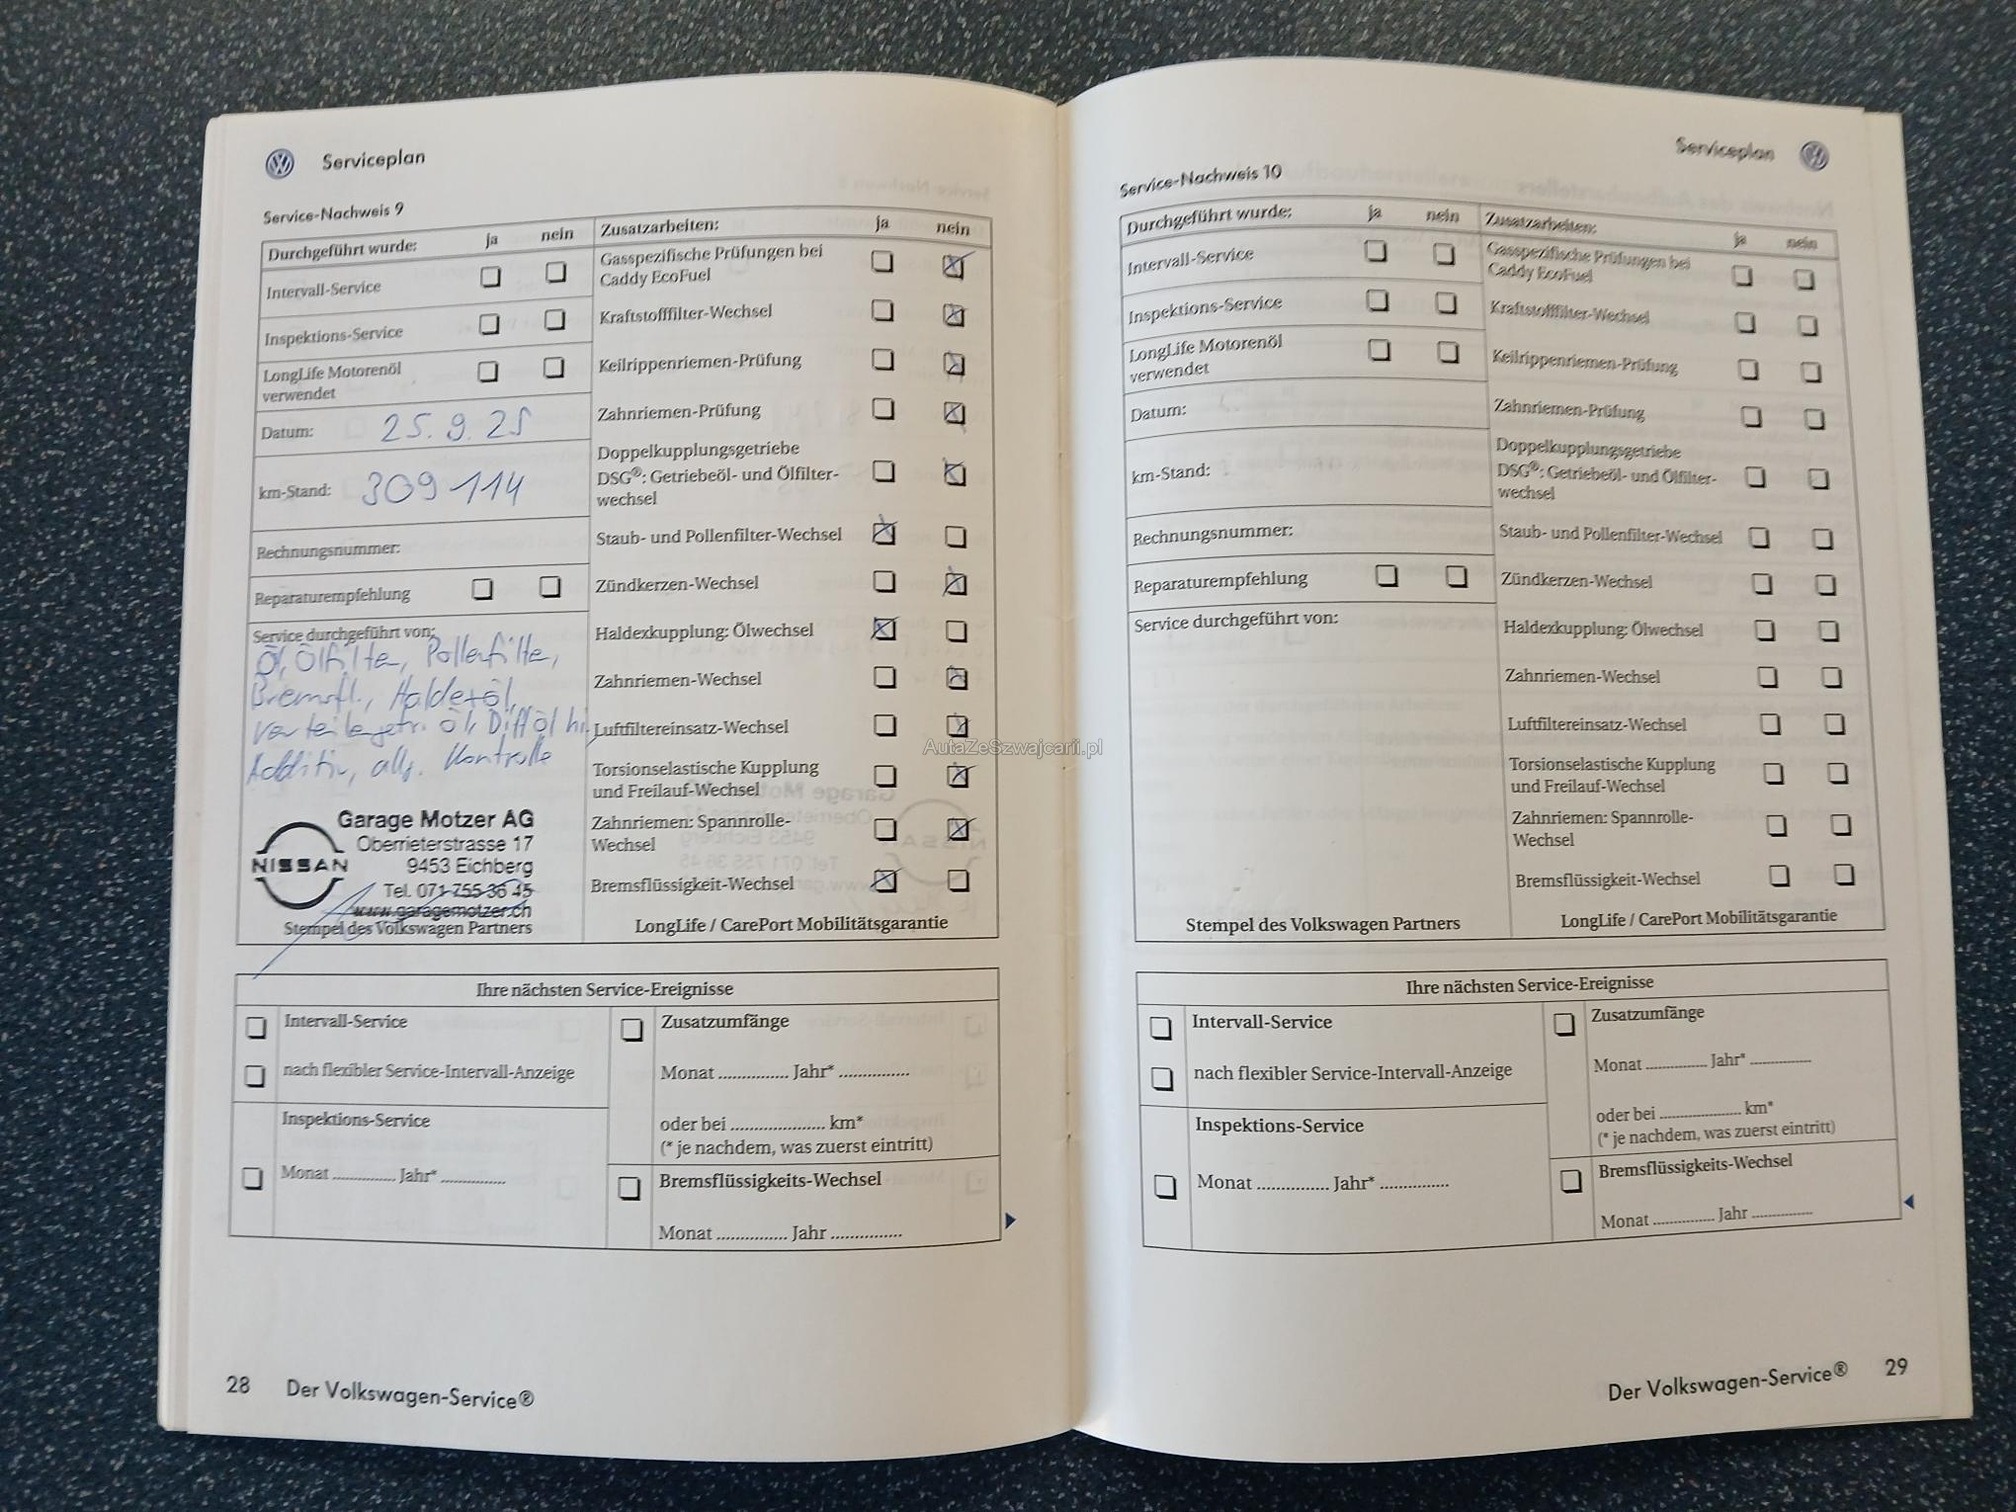 Serviceplan
Service-Nachweis 9
Durchgeführt wurde: ja nein
Intervall-Service
Inspektions-Service
LongLife Motorenöl
verwendet
Datum: 25.9.25
km-Stand: 309 114
Rechnungsnummer:
Reparaturempfehlung
Service durchgeführt von:
Öl, Ölfilter, Pollenfilter,
Bremsfl., Haldexöl,
Verteilergetr. öl, Diff öl hi.
Additiv, allg. Kontrolle
NISSAN
Garage Motzer AG
Oberrieterstrasse 17
9453 Eichberg
Tel. 071 755 36 45
www.garagemotzer.ch
Stempel des Volkswagen Partners
Zusatzarbeiten: ja nein
Gasspezifische Prüfungen bei
Caddy EcoFuel
Kraftstofffilter-Wechsel
Keilrippenriemen-Prüfung
Zahnriemen-Prüfung
Doppelkupplungsgetriebe
DSG®: Getriebeöl- und Ölfilter-
wechsel
Staub- und Pollenfilter-Wechsel
Zündkerzen-Wechsel
Haldexkupplung: Ölwechsel
Zahnriemen-Wechsel
Luftfiltereinsatz-Wechsel
Torsionselastische Kupplung
und Freilauf-Wechsel
Zahnriemen: Spannrolle-
Wechsel
Bremsflüssigkeit-Wechsel
LongLife / CarePort Mobilitätsgarantie
Ihre nächsten Service-Ereignisse
Intervall-Service
nach flexibler Service-Intervall-Anzeige
Inspektions-Service
Monat .............. Jahr* ..............
Zusatzumfänge
Monat .............. Jahr* ..............
oder bei ................... km*
(* je nachdem, was zuerst eintritt)
Bremsflüssigkeits-Wechsel
Monat .............. Jahr ..............
28 Der Volkswagen-Service®
AutaZeSzwajcarii.pl
Serviceplan
Service-Nachweis 10
Durchgeführt wurde: ja nein
Intervall-Service
Inspektions-Service
LongLife Motorenöl
verwendet
Datum:
km-Stand:
Rechnungsnummer:
Reparaturempfehlung
Service durchgeführt von:
Stempel des Volkswagen Partners
Zusatzarbeiten: ja nein
Gasspezifische Prüfungen bei
Caddy EcoFuel
Kraftstofffilter-Wechsel
Keilrippenriemen-Prüfung
Zahnriemen-Prüfung
Doppelkupplungsgetriebe
DSG®: Getriebeöl- und Ölfilter-
wechsel
Staub- und Pollenfilter-Wechsel
Zündkerzen-Wechsel
Haldexkupplung: Ölwechsel
Zahnriemen-Wechsel
Luftfiltereinsatz-Wechsel
Torsionselastische Kupplung
und Freilauf-Wechsel
Zahnriemen: Spannrolle-
Wechsel
Bremsflüssigkeit-Wechsel
LongLife / CarePort Mobilitätsgarantie
Ihre nächsten Service-Ereignisse
Intervall-Service
nach flexibler Service-Intervall-Anzeige
Inspektions-Service
Monat .............. Jahr* ..............
Zusatzumfänge
Monat .............. Jahr* ..............
oder bei ................... km*
(* je nachdem, was zuerst eintritt)
Bremsflüssigkeits-Wechsel
Monat .............. Jahr ..............
Der Volkswagen-Service® 29